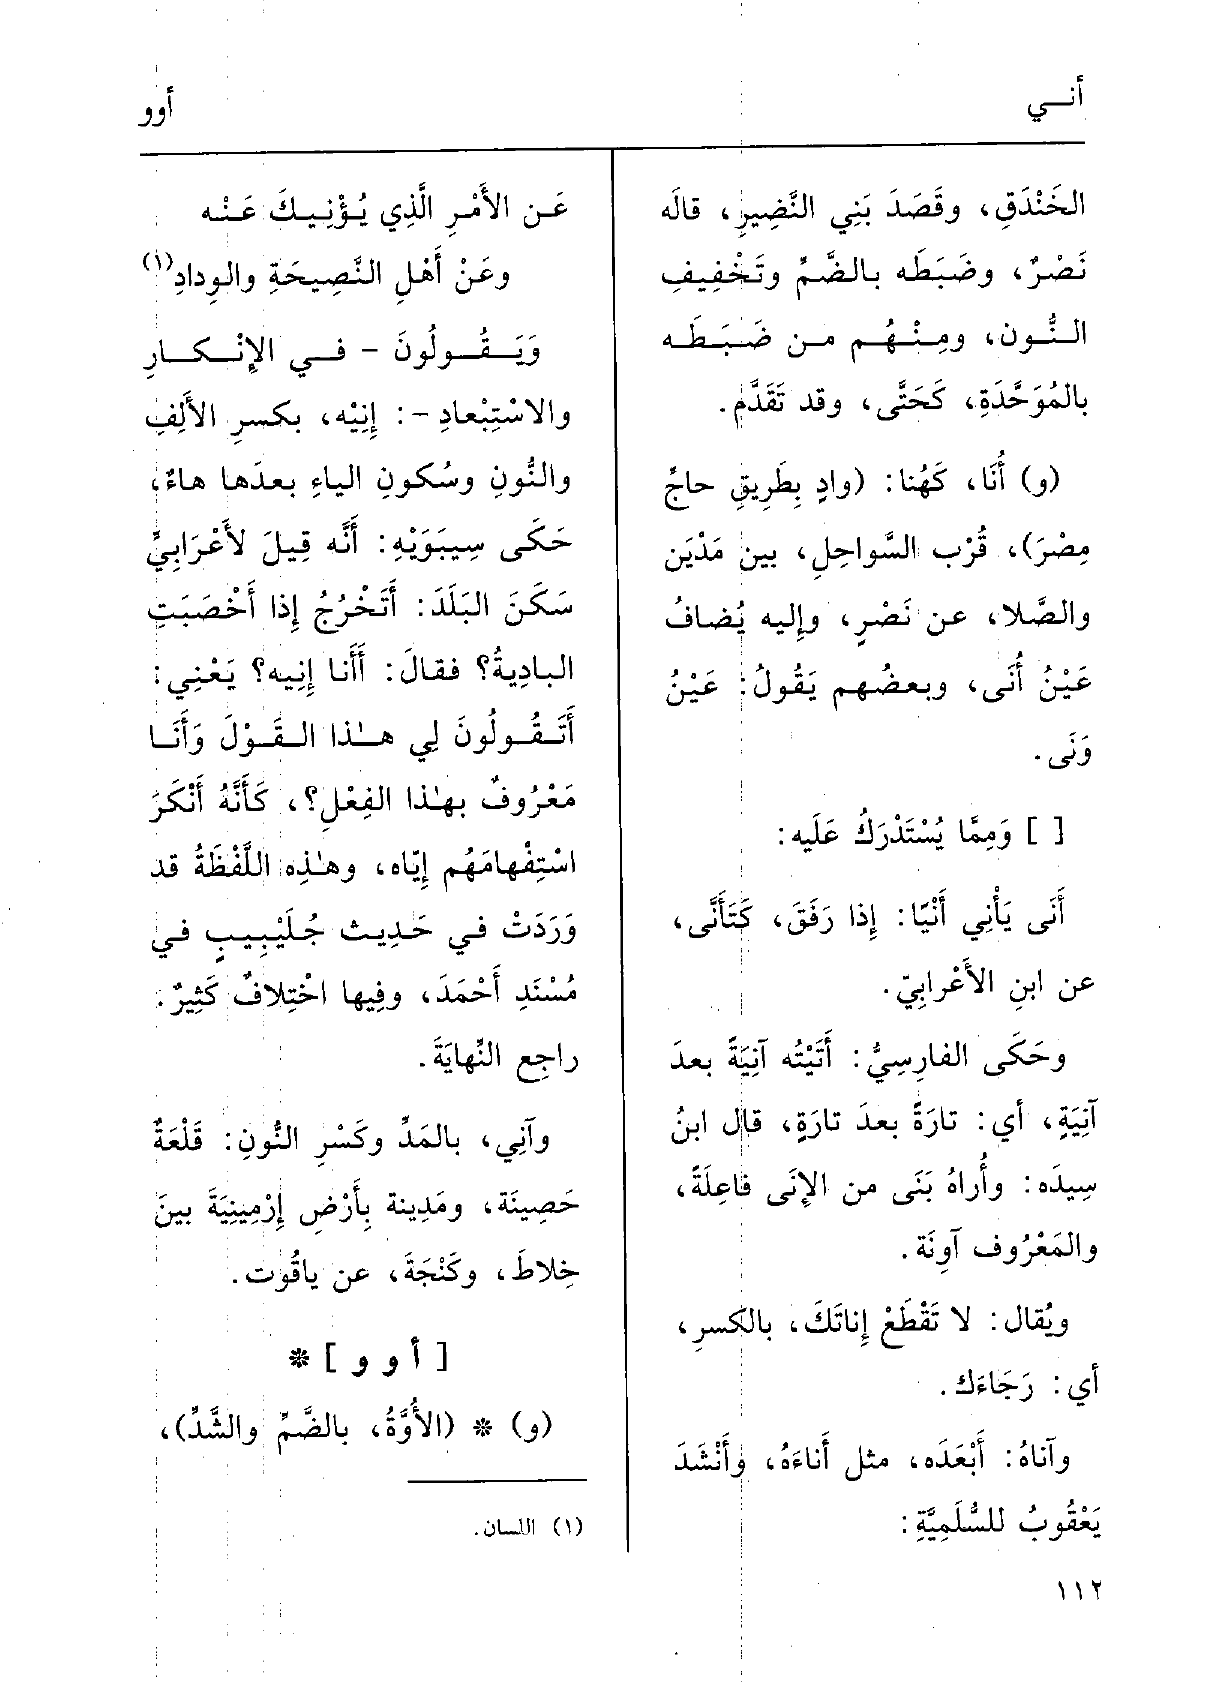 أنــي
أوو
الخَنْدَقِ، وقَصَدَ بَنِي النَّضِيرِ، قالَه
نَصْرٌ، وضَبَطَه بالضَّمِّ وتَخْفِيفِ
النُّون، ومِنْهُم من ضَبَطَه
بالمُوَحَّدَةِ، كَحَتَّى، وقد تَقَدَّم.
(و) أُنَا، كَهُنا: (وادٍ بِطَرِيقِ حاجِّ
مِصْرَ)، قُرْب السَّواحِلِ، بين مَدْيَن
والصَّلا، عن نَصْرٍ، وإليه يُضافُ
عَيْنُ أُنَى، وبعضُهم يَقُولُ: عَيْنُ
وَنَى.
[ ] وَمِمَّا يُسْتَدْرَكُ عَلَيه:
أَنَى يَأْنِي أَنْيًا: إِذا رَفَقَ، كَتَأَنَّى،
عن ابنِ الأَعْرابِيّ.
وحَكَى الفارِسِيُّ: أَتَيْتُه آنِيَةً بعدَ
آنِيَةٍ، أي: تارَةً بعدَ تارَةٍ، قال ابنُ
سِيدَه: وأُراهُ بَنَى من الإِنَى فاعِلَةً،
والمَعْرُوف آوِنَة.
ويُقال: لا تَقْطَعْ إِناتَكَ، بالكسرِ،
أي: رَجَاءَك.
وآناهُ: أَبْعَدَه، مثل أَناءَهُ، وأَنْشَدَ
يَعْقُوبُ للسُّلَمِيَّةِ:
عَـن الأَمْرِ الَّذِي يُؤْنِيكَ عَنْه
وعَنْ أَهْلِ النَّصِيحَةِ والوِدادِ(١)
وَيَقُولُونَ - في الإِنْكارِ
والاسْتِبْعادِ -: إِنِيْه، بكسرِ الأَلِفِ
والنُّونِ وسُكونِ الياءِ بعدَها هاءٌ،
حَكَى سِيبَوَيْهِ: أَنَّه قِيلَ لأَعْرَابِيٍّ
سَكَنَ البَلَدَ: أَتَخْرُجُ إِذا أَخْصَبَتِ
البادِيةُ؟ فقالَ: أَأَنا إِنِيه؟ يَعْنِي:
أَتَقُولُونَ لِي هـٰذا القَوْلَ وَأَنَا
مَعْرُوفٌ بهٰذا الفِعْلِ؟، كَأَنَّهُ أَنْكَرَ
اسْتِفْهامَهُم إِيّاه، وهٰذِه اللَّفْظَةُ قد
وَرَدَتْ في حَدِيث جُلَيْبِيبٍ في
مُسْنَدِ أَحْمَدَ، وفِيها اخْتِلافٌ كَثِيرٌ:
راجِع النِّهايَةَ.
وآنِي، بالمَدِّ وكَسْرِ النُّونِ: قَلْعَةٌ
حَصِينَة، ومَدِينة بِأَرْضِ إِرْمِينِيَةَ بينَ
خِلاطَ، وكَنْجَةَ، عن ياقُوت.
[ أ و و ] *
(و) * (الأُوَّةُ، بالضَّمِّ والشَّدِّ)،
(١) اللسان.
١١٢